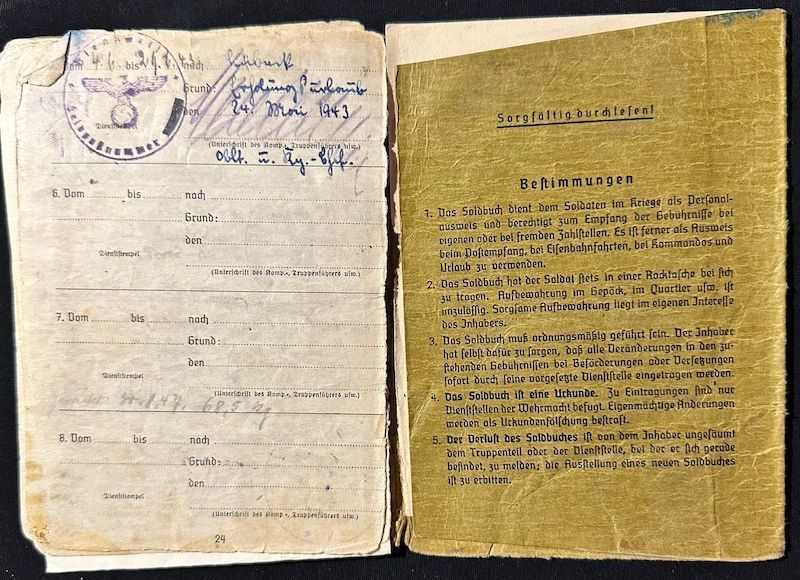 Vom 4.6. bis 29.6.43 nach Lübeck
Grund: Erholungsurlaub
den 24. Mai 1943
Dienststempel
Feldpostnummer
(Unterschrift des Komp.-, Truppenführers usw.)
Oblt. u. Kp.-Chef.
6. Vom bis nach
Grund:
den
Dienststempel
(Unterschrift des Komp.-, Truppenführers usw.)
7. Vom bis nach
Grund:
den
Dienststempel
68,5 kg
(Unterschrift des Komp.-, Truppenführers usw.)
8. Vom bis nach
Grund:
den
Dienststempel
(Unterschrift des Komp.-, Truppenführers usw.)
24
Sorgfältig durchlesen!
Bestimmungen
1. Das Soldbuch dient dem Soldaten im Kriege als Personal-
ausweis und berechtigt zum Empfang der Gebührnisse bei
eigenen oder bei fremden Zahlstellen. Es ist ferner als Ausweis
beim Postempfang, bei Eisenbahnfahrten, bei Kommandos und
Urlaub zu verwenden.
2. Das Soldbuch hat der Soldat stets in einer Rocktasche bei sich
zu tragen. Aufbewahrung im Gepäck, im Quartier usw. ist
unzulässig. Sorgsame Aufbewahrung liegt im eigenen Interesse
des Inhabers.
3. Das Soldbuch muß ordnungsmäßig geführt sein. Der Inhaber
hat selbst dafür zu sorgen, daß alle Veränderungen in den zu-
stehenden Gebührnissen bei Beförderungen oder Versetzungen
sofort durch seine vorgesetzte Dienststelle eingetragen werden.
4. Das Soldbuch ist eine Urkunde. Zu Eintragungen sind nur
Dienststellen der Wehrmacht befugt. Eigenmächtige Änderungen
werden als Urkundenfälschung bestraft.
5. Der Verlust des Soldbuches ist von dem Inhaber ungesäumt
dem Truppenteil oder der Dienststelle, bei der er sich gerade
befindet, zu melden; die Ausstellung eines neuen Soldbuches
ist zu erbitten.